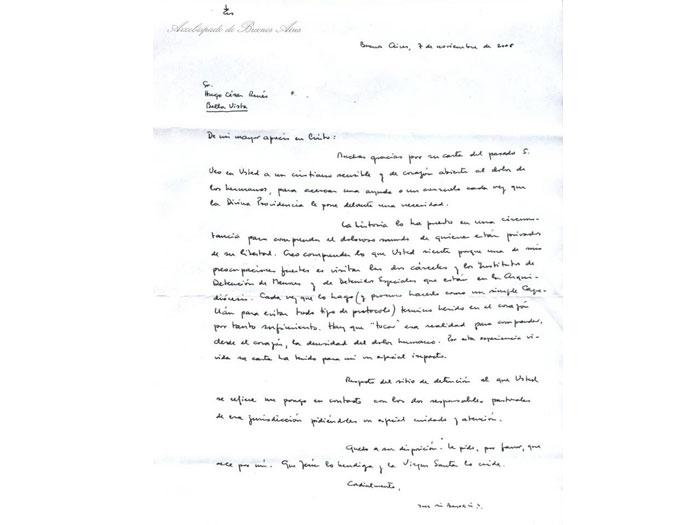 Arzobispado de Buenos Aires
Buenos Aires, 7 de noviembre de 2008
Sr.
Hugo César Renés
Bella Vista
De mi mayor aprecio en Cristo:
Muchas gracias por su carta del pasado 5.
Veo en Usted a un cristiano sensible y de corazón abierto al dolor de
los hermanos, para acercar una ayuda o un consuelo cada vez que
la Divina Providencia le pone delante una necesidad.
La historia lo ha puesto en una circuns-
tancia para comprender el doloroso mundo de quienes están privados
de su libertad. Creo comprender lo que Usted siente porque una de mis
preocupaciones fuertes es visitar las dos cárceles y los Institutos de
Detención de Menores y de Detenidos Especiales que están en la Arqui-
diócesis. Cada vez que lo hago (y procuro hacerlo como un simple Cape-
llán para evitar todo tipo de protocolo) termino herido en el corazón
por tanto sufrimiento. Hay que "tocar" esa realidad para comprender,
desde el corazón, la densidad del dolor humano. Por esta experiencia vi-
vida su carta ha tenido para mí un especial impacto.
Respecto del sitio de detención al que Usted
se refiere me pongo en contacto con los dos responsables pastorales
de esa jurisdicción pidiéndoles un especial cuidado y atención.
Quedo a su disposición. Le pido, por favor, que
rece por mí. Que Jesús lo bendiga y la Virgen Santa lo cuide.
Cordialmente,